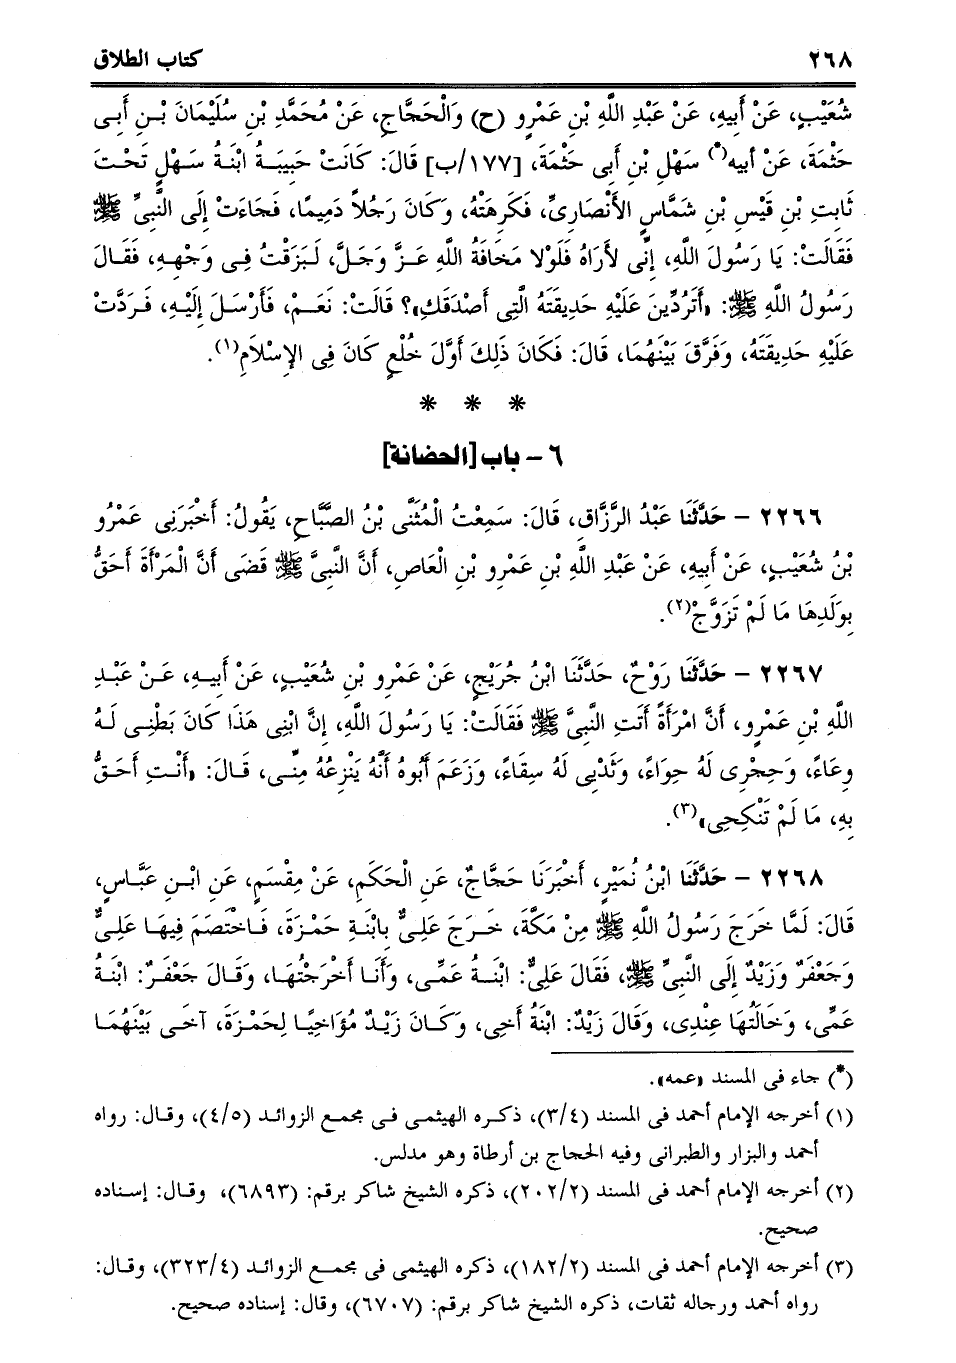 ٢٦٨ كتاب الطلاق
شُعَيْبٍ، عَنْ أَبِيهِ، عَنْ عَبْدِ اللَّهِ بْنِ عَمْرٍو (ح) وَالْحَجَّاجِ، عَنْ مُحَمَّدِ بْنِ سُلَيْمَانَ بْنِ أَبِى
حَثْمَةَ، عَنْ أبيه(*) سَهْلِ بْنِ أَبِى حَثْمَةَ، [١٧٧/ب] قَالَ: كَانَتْ حَبِيبَةُ ابْنَةُ سَهْلٍ تَحْتَ
ثَابِتِ بْنِ قَيْسِ بْنِ شَمَّاسٍ الأَنْصَارِىِّ، فَكَرِهَتْهُ، وَكَانَ رَجُلاً دَمِيمًا، فَجَاءَتْ إِلَى النَّبِىِّ ﷺ
فَقَالَتْ: يَا رَسُولَ اللَّهِ، إِنِّى لأَرَاهُ فَلَوْلا مَخَافَةُ اللَّهِ عَزَّ وَجَلَّ، لَبَزَقْتُ فِى وَجْهِهِ، فَقَالَ
رَسُولُ اللَّهِ ﷺ: «أَتَرُدِّينَ عَلَيْهِ حَدِيقَتَهُ الَّتِى أَصْدَقَكِ»؟ قَالَتْ: نَعَمْ، فَأَرْسَلَ إِلَيْهِ، فَرَدَّتْ
عَلَيْهِ حَدِيقَتَهُ، وَفَرَّقَ بَيْنَهُمَا، قَالَ: فَكَانَ ذَلِكَ أَوَّلَ خُلْعٍ كَانَ فِى الإِسْلاَمِ(١).
* * *
٦ – باب [الحضانة]
٢٢٦٦ – حَدَّثَنَا عَبْدُ الرَّزَّاقِ، قَالَ: سَمِعْتُ الْمُثَنَّى بْنُ الصَّبَّاحِ، يَقُولُ: أَخْبَرَنِى عَمْرُو
بْنُ شُعَيْبٍ، عَنْ أَبِيهِ، عَنْ عَبْدِ اللَّهِ بْنِ عَمْرِو بْنِ الْعَاصِ، أَنَّ النَّبِىَّ ﷺ قَضَى أَنَّ الْمَرْأَةَ أَحَقُّ
بِوَلَدِهَا مَا لَمْ تَزَوَّجْ(٢).
٢٢٦٧ – حَدَّثَنَا رَوْحٌ، حَدَّثَنَا ابْنُ جُرَيْجٍ، عَنْ عَمْرِو بْنِ شُعَيْبٍ، عَنْ أَبِيهِ، عَنْ عَبْدِ
اللَّهِ بْنِ عَمْرٍو، أَنَّ امْرَأَةً أَتَتِ النَّبِىَّ ﷺ فَقَالَتْ: يَا رَسُولَ اللَّهِ، إِنَّ ابْنِى هَذَا كَانَ بَطْنِى لَهُ
وِعَاءً، وَحِجْرِى لَهُ حِوَاءً، وَثَدْيِى لَهُ سِقَاءً، وَزَعَمَ أَبُوهُ أَنَّهُ يَنْزِعُهُ مِنِّى، قَالَ: «أَنْتِ أَحَقُّ
بِهِ، مَا لَمْ تَنْكِحِى»(٣).
٢٢٦٨ – حَدَّثَنَا ابْنُ نُمَيْرٍ، أَخْبَرَنَا حَجَّاجٌ، عَنِ الْحَكَمِ، عَنْ مِقْسَمٍ، عَنِ ابْنِ عَبَّاسٍ،
قَالَ: لَمَّا خَرَجَ رَسُولُ اللَّهِ ﷺ مِنْ مَكَّةَ، خَرَجَ عَلِىٌّ بِابْنَةِ حَمْزَةَ، فَاخْتَصَمَ فِيهَا عَلِىٌّ
وَجَعْفَرٌ وَزَيْدٌ إِلَى النَّبِىِّ ﷺ، فَقَالَ عَلِىٌّ: ابْنَةُ عَمِّى، وَأَنَا أَخْرَجْتُهَا، وَقَالَ جَعْفَرٌ: ابْنَةُ
عَمِّى، وَخَالَتُهَا عِنْدِى، وَقَالَ زَيْدٌ: ابْنَةُ أَخِى، وَكَانَ زَيْدٌ مُؤَاخِيًا لِحَمْزَةَ، آخَى بَيْنَهُمَا
(*) جاء فى المسند «عمه».
(١) أخرجه الإمام أحمد فى المسند (٣/٤)، ذكره الهيثمى فى مجمع الزوائد (٤/٥)، وقال: رواه
أحمد والبزار والطبرانى وفيه الحجاج بن أرطاة وهو مدلس.
(٢) أخرجه الإمام أحمد فى المسند (٢٠٢/٢)، ذكره الشيخ شاكر برقم: (٦٨٩٣)، وقال: إسناده
صحيح.
(٣) أخرجه الإمام أحمد فى المسند (١٨٢/٢)، ذكره الهيثمى فى مجمع الزوائد (٣٢٣/٤)، وقال:
رواه أحمد ورجاله ثقات، ذكره الشيخ شاكر برقم: (٦٧٠٧)، وقال: إسناده صحيح.